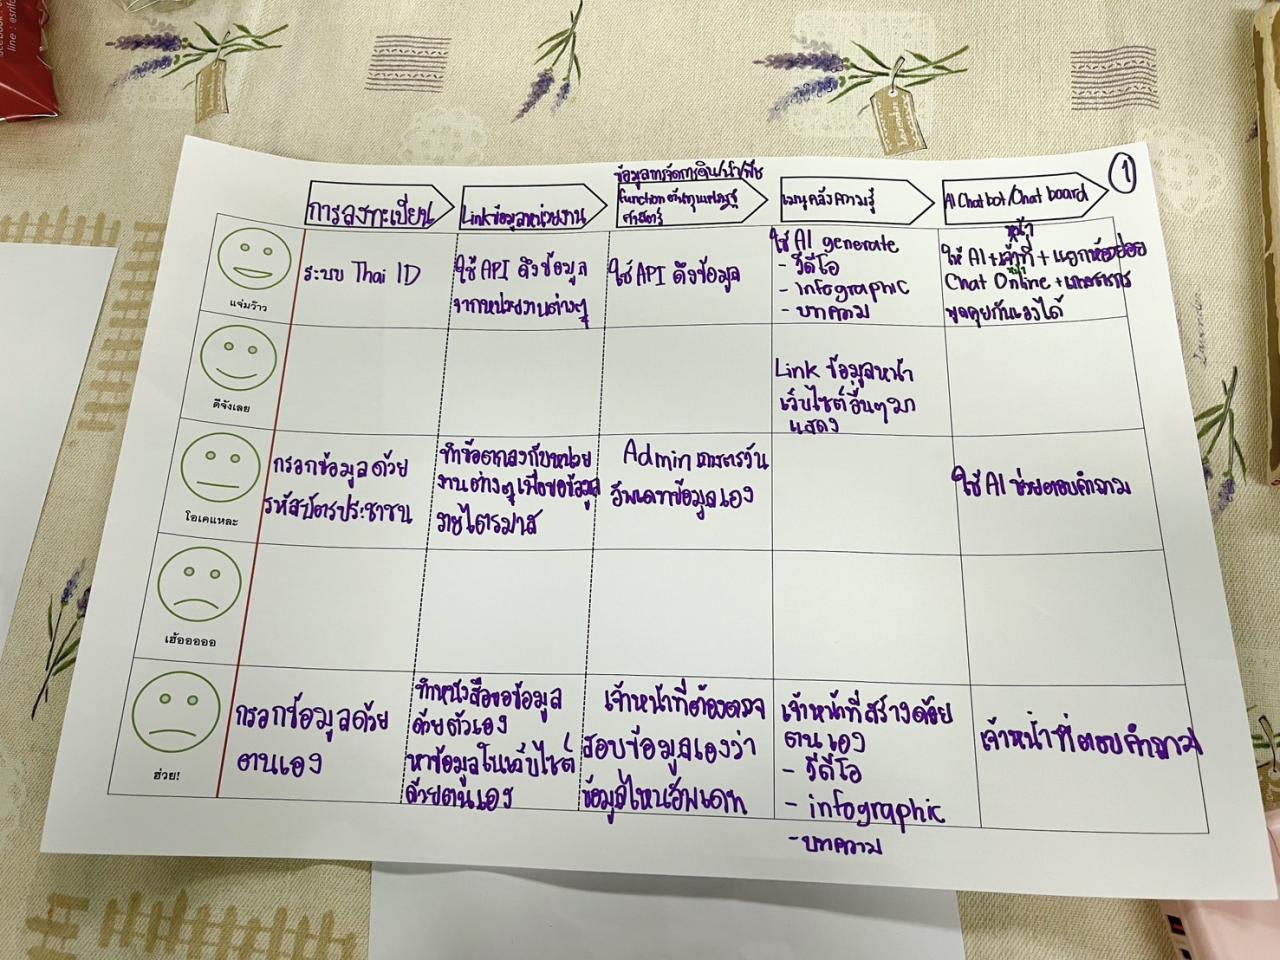 line : @srifa
1
การลงทะเบียน
Linkข้อมูลหน่วยงาน
ข้อมูลการจัดการดิน/น้ำ/พืช
Function ด้านภูมิ
ศาสตร์
เมนูคลังความรู้
AI Chatbot/Chat board
แจ่มว๊าว
ระบบ Thai ID
ใช้ API ดึงข้อมูล
จากหน่วยงานต่างๆ
ใช้ API ดึงข้อมูล
ใช้ AI generate
- วีดีโอ
- infographic
- บทความ
ใช้ AI + เจ้าหน้าที่ + แยกห้องย่อย
Chat Online + เกษตรกร
พูดคุยกันเองได้
ดีจังเลย
Link ข้อมูลหน้า
เว็บไซต์อื่นๆมา
แสดง
โอเคแหละ
กรอกข้อมูลด้วย
รหัสบัตรประชาชน
ทำข้อตกลงกับหน่วย
งานต่างๆเพื่อขอข้อมูล
รายไตรมาส
Admin เกษตรวัน
อัพเดทข้อมูลเอง
ใช้ AI ช่วยตอบคำถาม
เฮ้อออออ
ฮ่วย!
กรอกข้อมูลด้วย
ตนเอง
ทำหนังสือขอข้อมูล
ด้วยตัวเอง
หาข้อมูลในเว็บไซต์
ด้วยตนเอง
เจ้าหน้าที่ต้องตรวจ
สอบข้อมูลเองว่า
ข้อมูลไหนอัพเดท
เจ้าหน้าที่สร้างด้วย
ตนเอง
- วีดีโอ
- infographic
- บทความ
เจ้าหน้าที่ตอบคำถาม